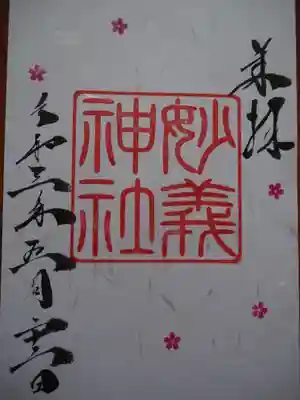 奉拝
妙義
神社
令和三年五月日